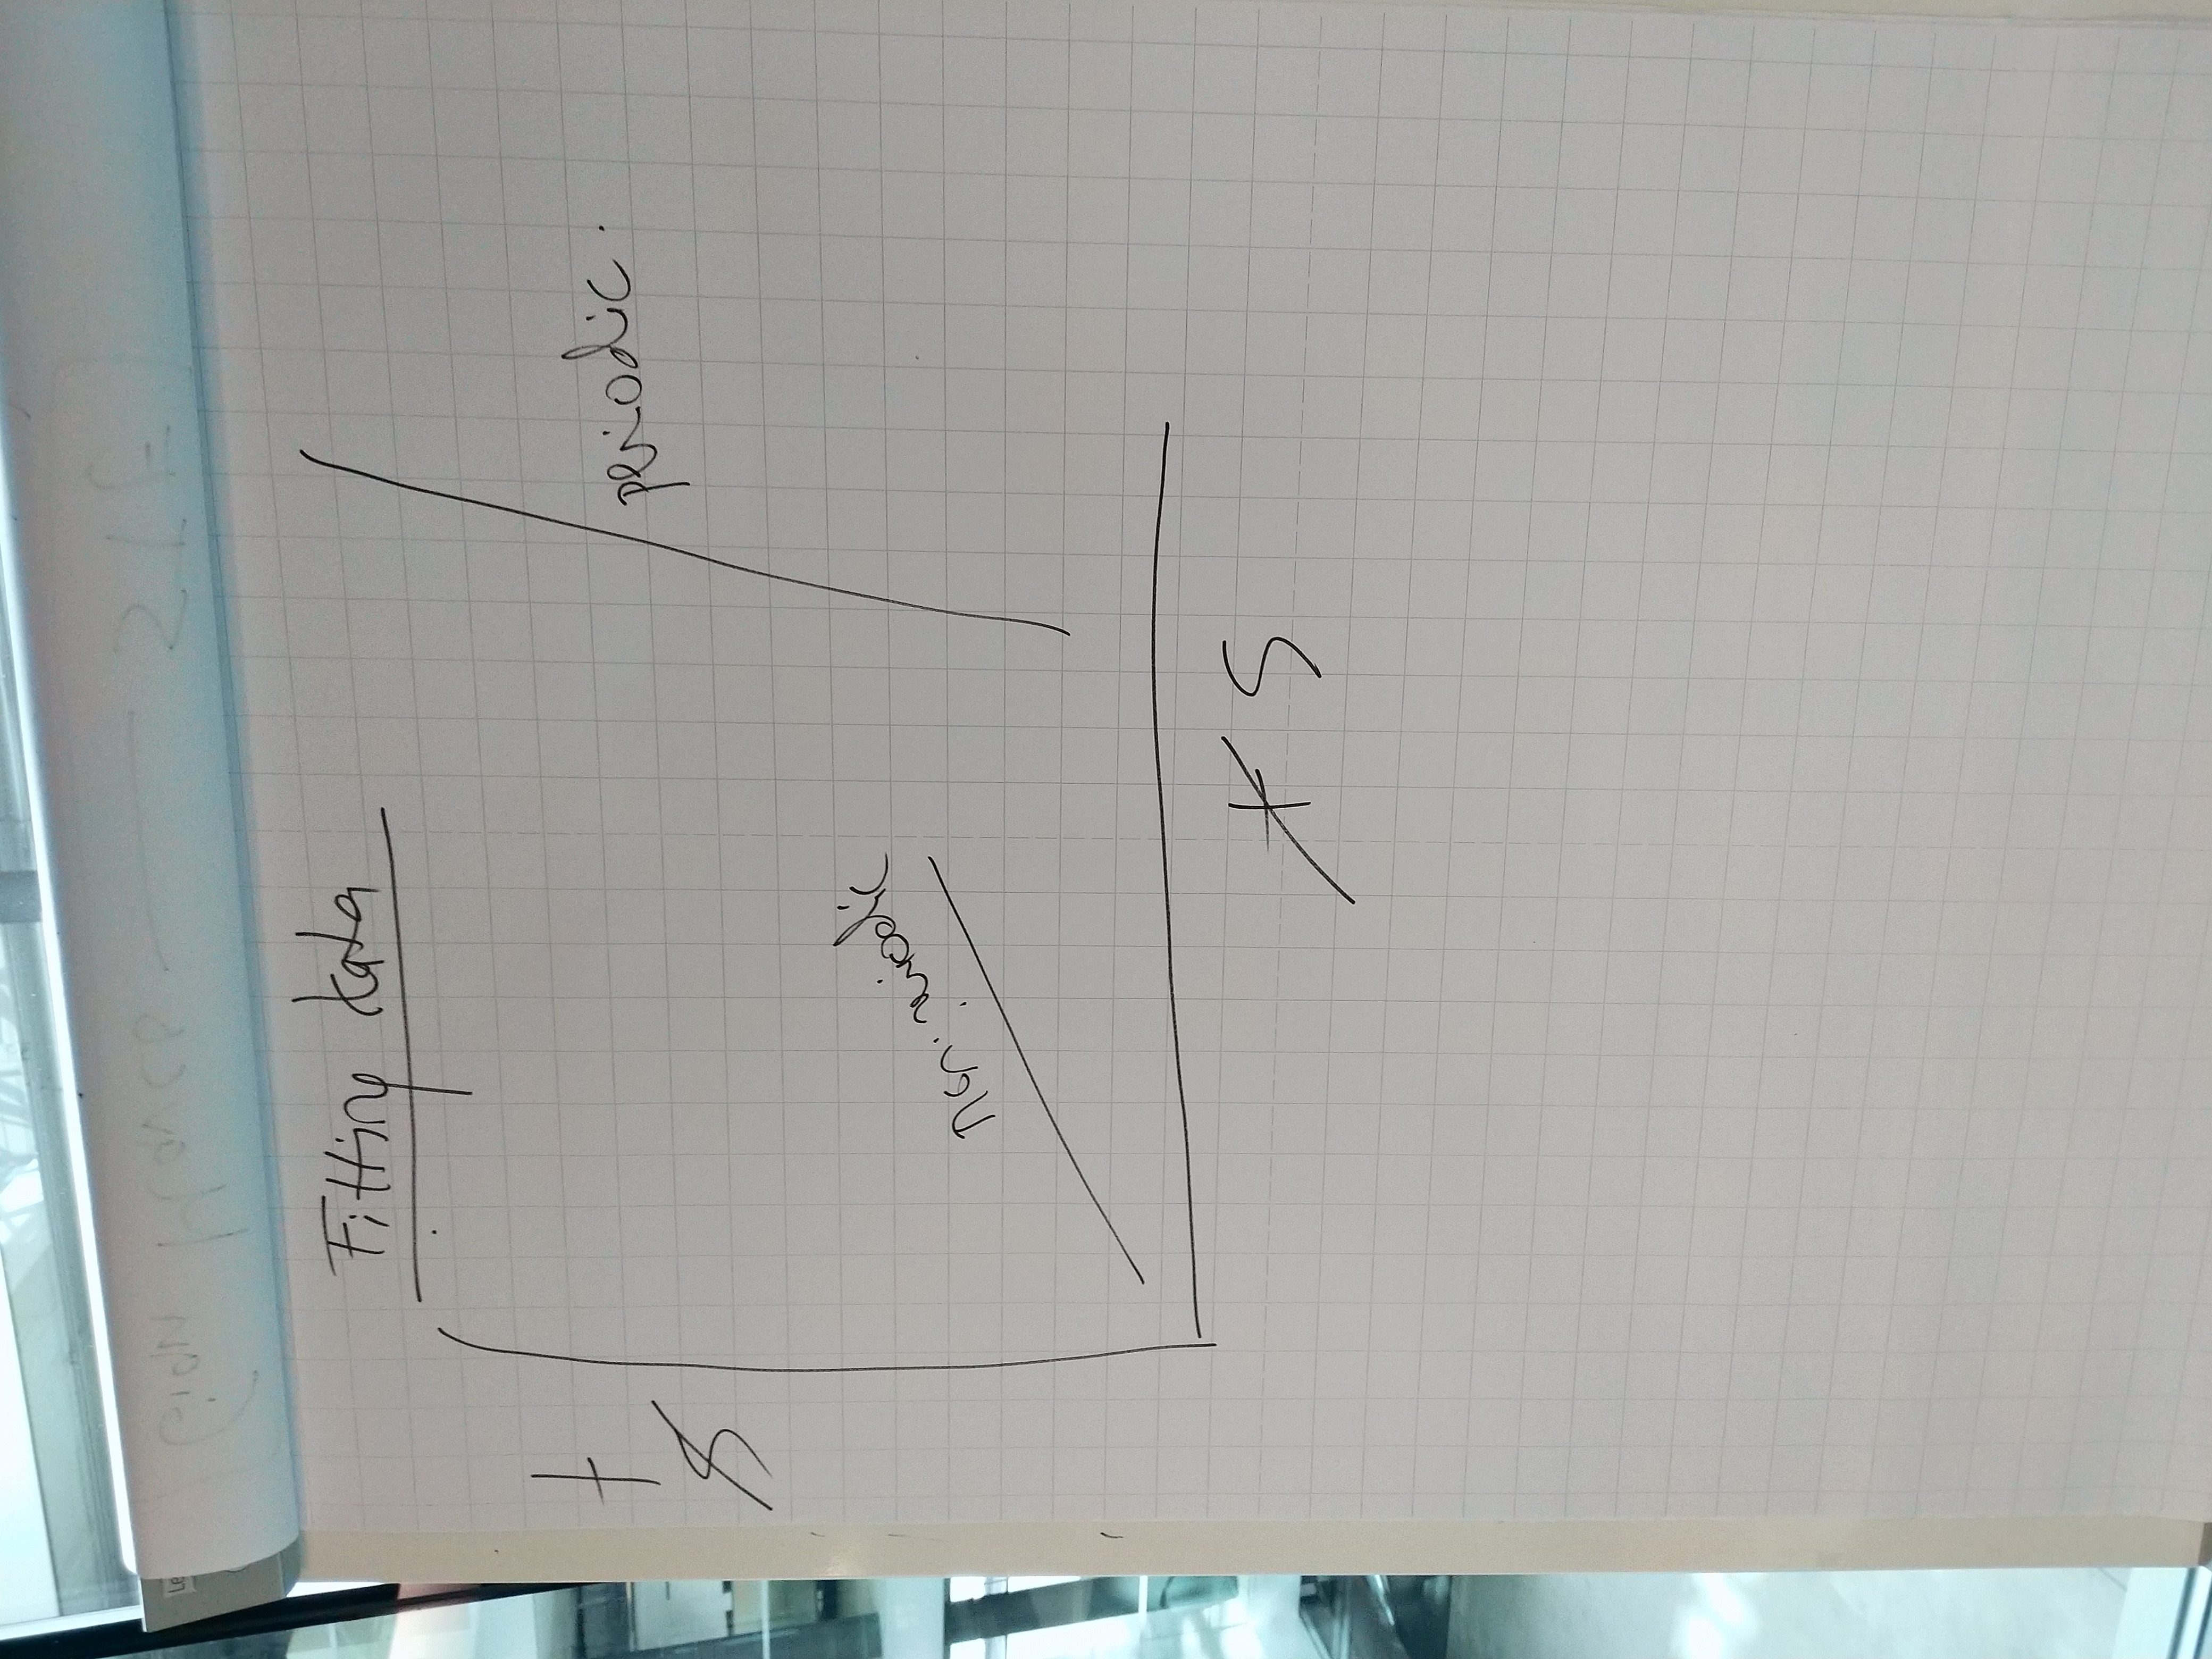 Fitting data
t
s
periodic.
non-periodic
t s
Le